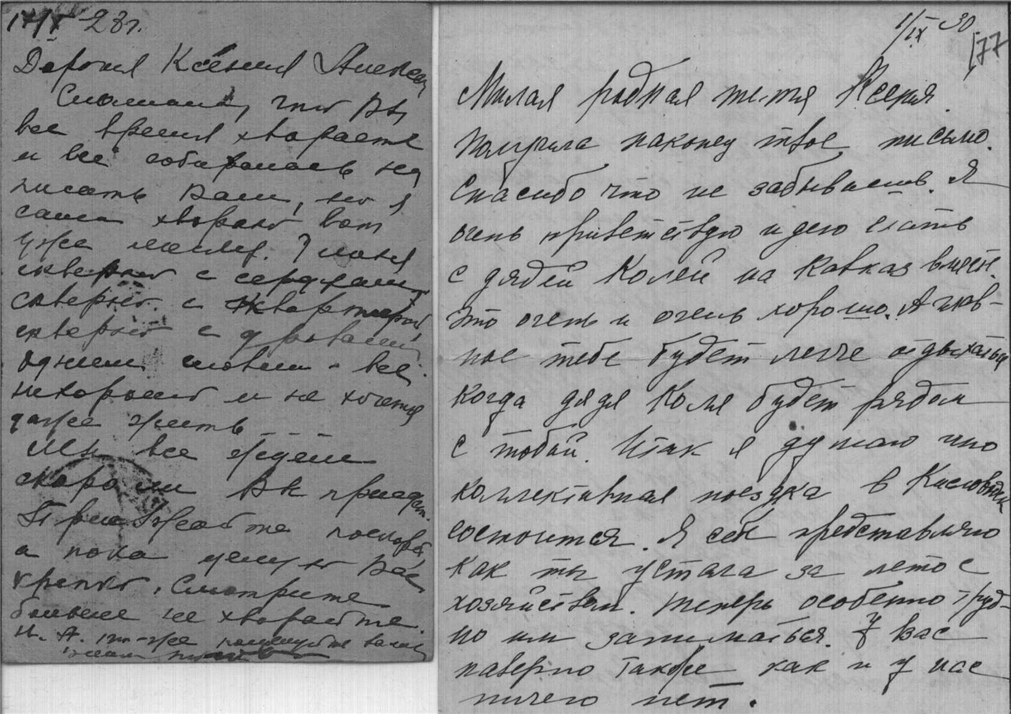 17/X - 28г.
Дорогая Ксения
Слышала, что Вы
все время хвораете
и всё собиралась на
писать Вам, но я
сама хвораю вот
уже месяц. У меня
скверно с сердцем,
скверно с квартирой,
скверно с дровами,
одним словом - всё
нехорошо и не хочется
даже жить
Мы все ждем
скоро ли Вы приедете.
Приезжайте поскорей,
а пока целую Вас
крепко. Смотрите
больше не хворайте.
Н. А. то-же
1/IX 30
177
Милая родная тетя Ксения.
Получила наконец твое письмо.
Спасибо что не забываешь. Я
очень приветствую идею ехать
с дядей Колей на Кавказ вместе.
Это очень и очень хорошо. А глав-
ное тебе будет легче отдыхать
когда дядя Коля будет рядом
с тобой. Итак я думаю что
коллективная поездка в Кисловодск
состоится. Я себе представляю
как ты устала за лето с
хозяйством. Теперь особенно труд-
но им заниматься. У вас
наверно также как и у нас
ничего нет.